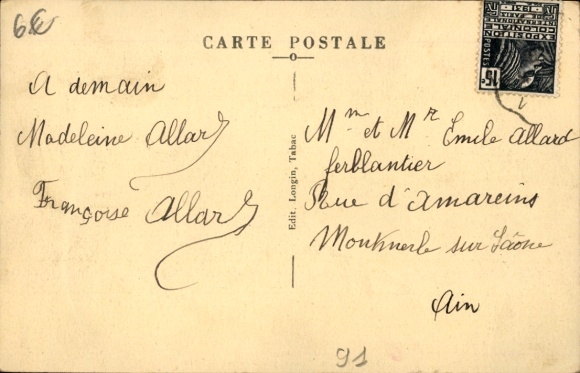 6€
CARTE POSTALE
A demain
Madeleine Allard
Françoise Allard
Edit. Longin, Tabac
Mm et Mr Emile Allard
ferblantier
Rue d'Amareins
Montmerle sur Saône
Ain
91
EXPOSITION
COLONIALE
INTERNATIONALE
PARIS 1931
POSTES
15c